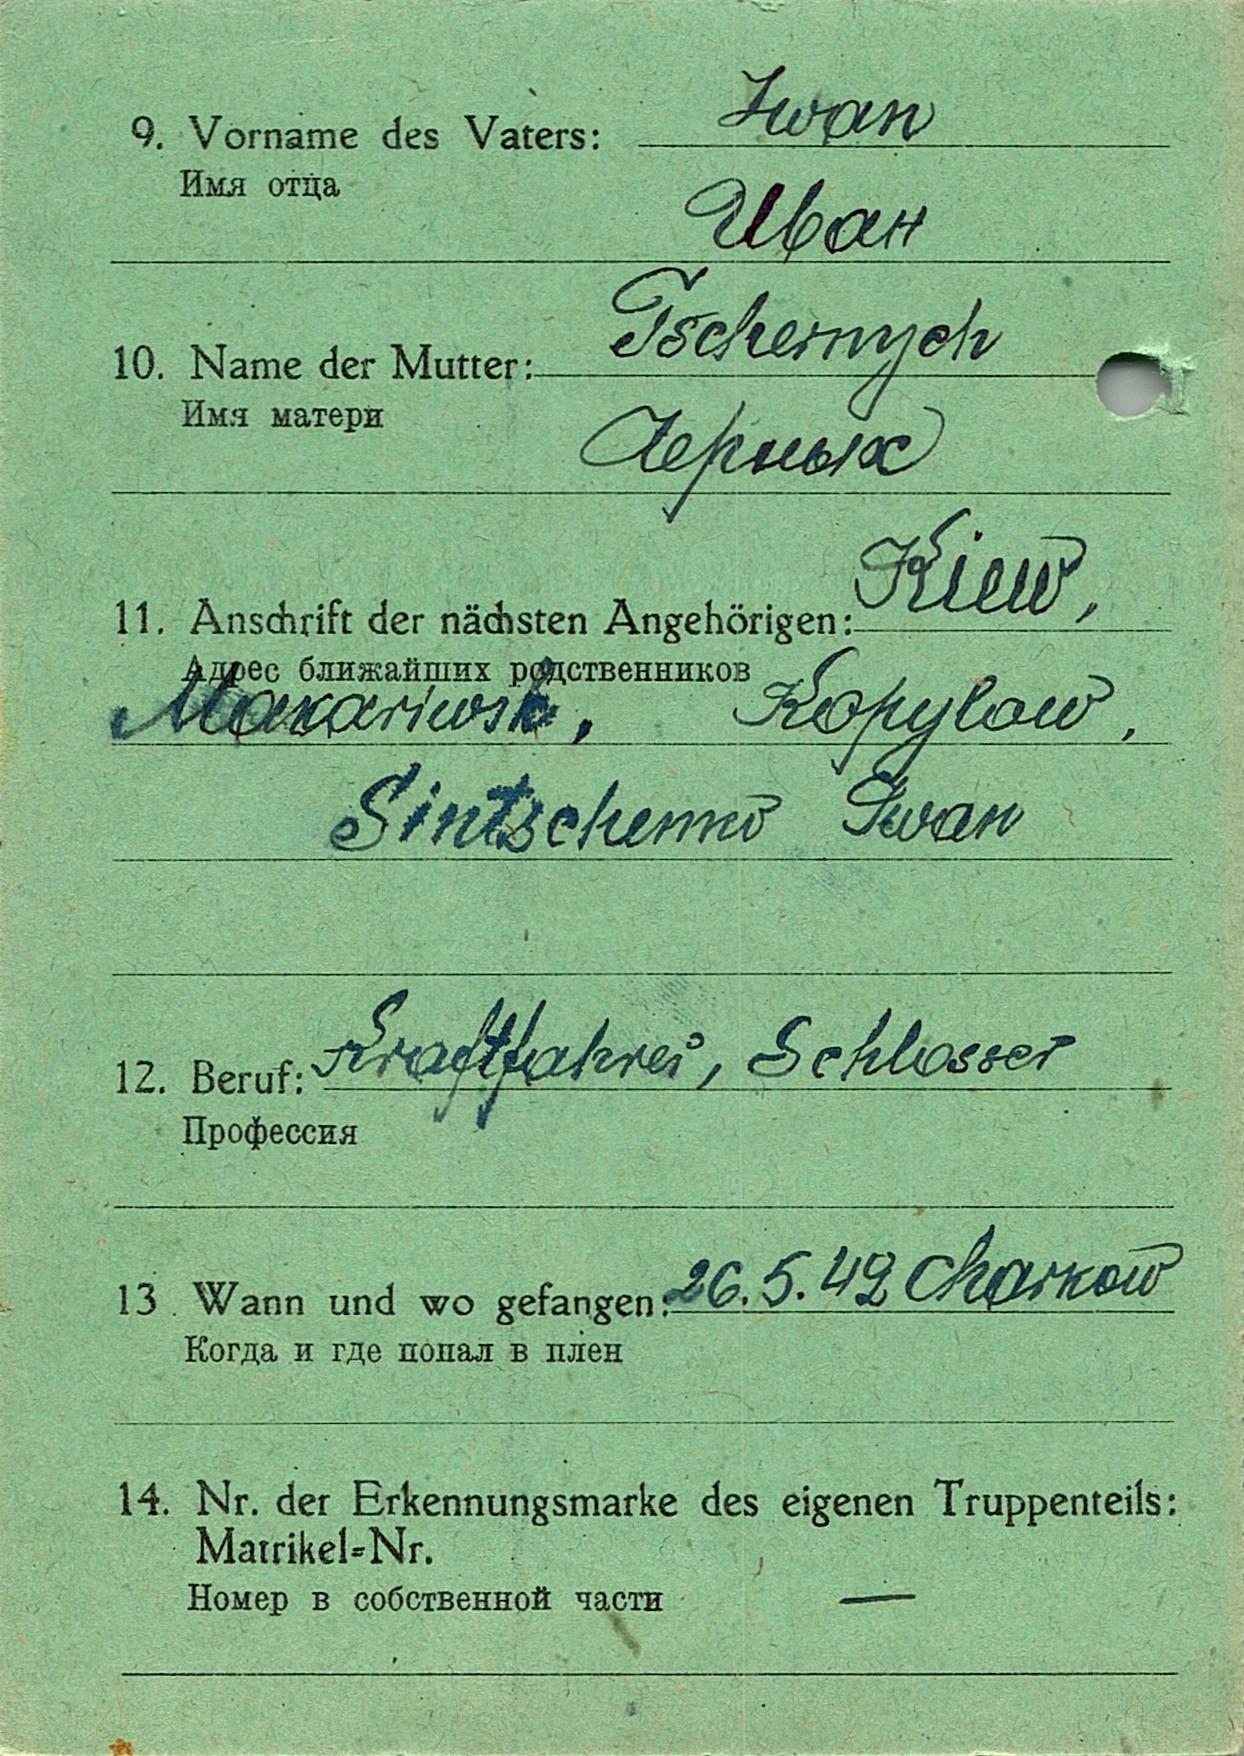 9. Vorname des Vaters: Iwan
Имя отца
Иван
10. Name der Mutter: Tschernych
Имя матери
Черных
11. Anschrift der nächsten Angehörigen: Kiew,
Адрес ближайших родственников
Makariwsk, Kopylow,
Sintschenko Iwan
12. Beruf: Kraftfahrer, Schlosser
Профессия
13. Wann und wo gefangen: 26.5.42 Charkow
Когда и где попал в плен
14. Nr. der Erkennungsmarke des eigenen Truppenteils:
Matrikel-Nr.
Номер в собственной части —